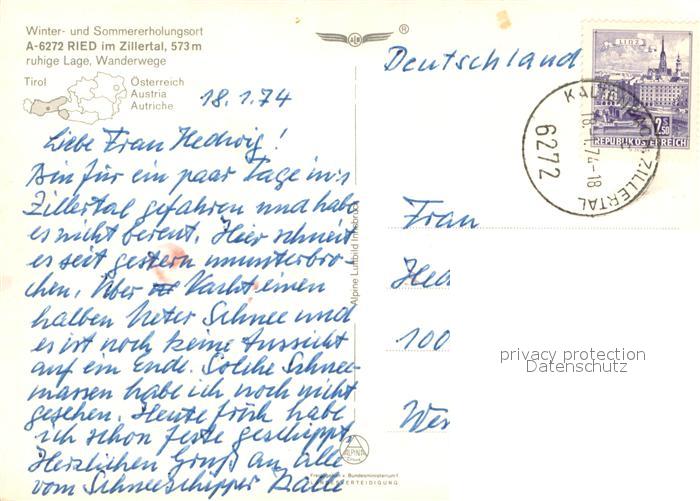 Winter- und Sommererholungsort
A-6272 RIED im Zillertal, 573 m
ruhige Lage, Wanderwege
Tirol
Österreich
Austria
Autriche
18.1.74
Liebe Frau Hedwig!
Bin für ein paar Tage in's
Zillertal gefahren und habe
es nicht bereut. Hier schneit
es seit gestern ununterbro-
chen. Über Nacht einen
halben Meter Schnee und
es ist noch keine Aussicht
auf ein Ende. Solche Schnee-
massen habe ich noch nicht
gesehen. Heute früh habe
ich schon feste geschippt,
Herzlichen Gruß an alle
vom Schneeschipper Kalle
Alpine Luftbild Innsbruck
ALPINE
Freigegeben v. Bundesministerium f.
LANDESVERTEIDIGUNG
®
Deutschland
LINZ
2.50
REPUBLIK ÖSTERREICH
6272
ZILLERTAL
18.1.74-18
Frau
Hed
100
privacy protection
Datenschutz
Wer